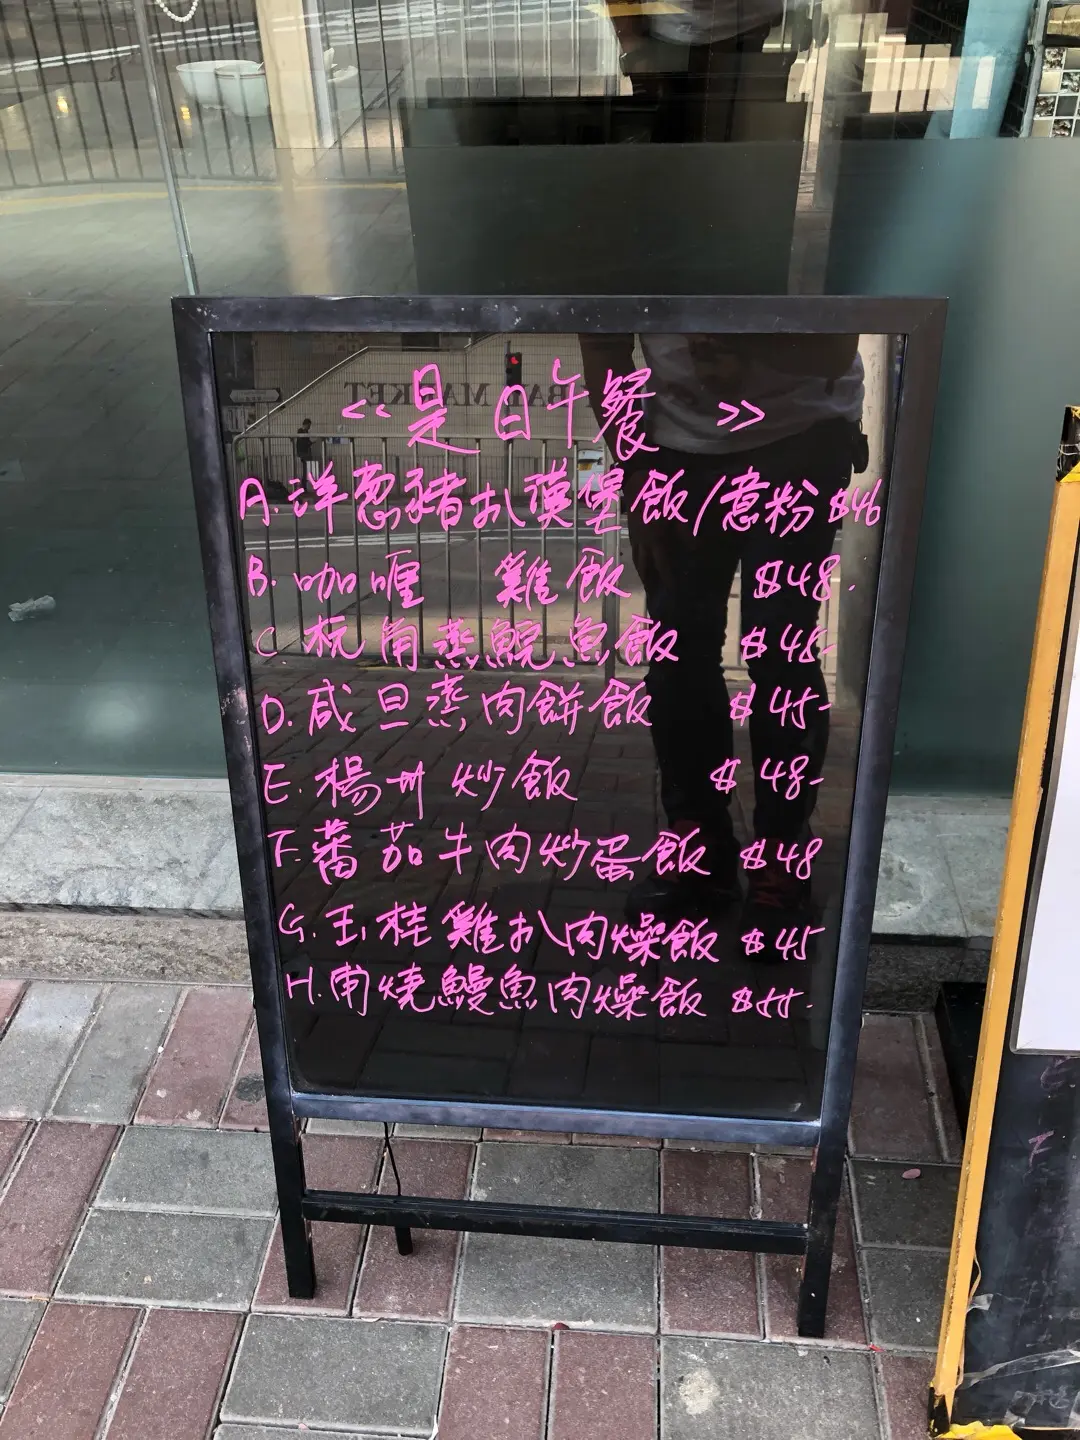 <<是日午餐 >>
A.洋葱豬扒漢堡飯/意粉 $46
B.咖喱 雞飯 $48.
C.杭角蒸鯇魚飯 $48-
D.咸旦蒸肉餅飯 $45-
E.楊州炒飯 $48-
F.蕃茄牛肉炒蛋飯 $48
G.玉桂雞扒肉燥飯 $45
H.串燒鰻魚肉燥飯 $55-
BAL MARKET